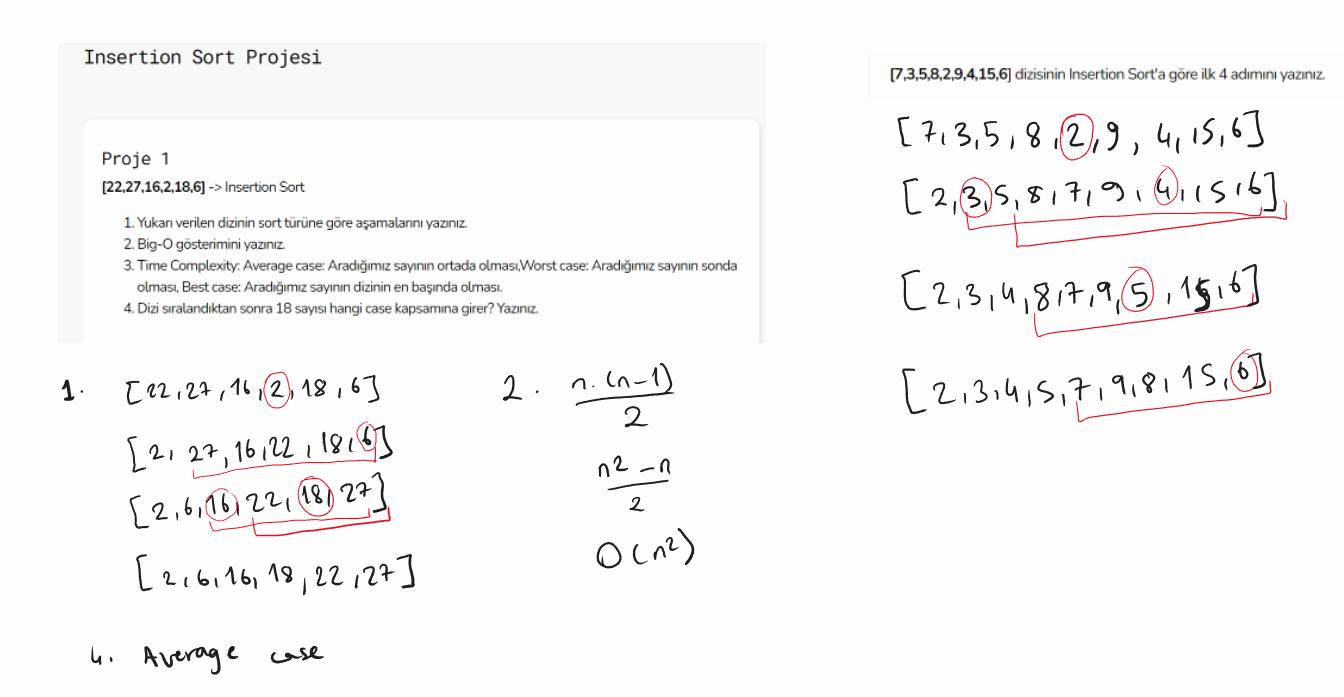 Insertion Sort Projesi
Proje 1
[22,27,16,2,18,6] -> Insertion Sort
1. Yukarı verilen dizinin sort türüne göre aşamalarını yazınız.
2. Big-O gösterimini yazınız.
3. Time Complexity: Average case: Aradığımız sayının ortada olması,Worst case: Aradığımız sayının sonda
olması, Best case: Aradığımız sayının dizinin en başında olması.
4. Dizi sıralandıktan sonra 18 sayısı hangi case kapsamına girer? Yazınız.
1. [22,27,16,2,18,6]
[2, 27,16,22,18,6]
[2,6,16,22,18,27]
[2,6,16,18,22,27]
2. n.(n-1)
2
n2 - n
2
O(n2)
4. Average case
[7,3,5,8,2,9,4,15,6] dizisinin Insertion Sort'a göre ilk 4 adımını yazınız.
[7,3,5,8,2,9,4,15,6]
[2,3,5,8,7,9,4,15,6]
[2,3,4,8,7,9,5,15,6]
[2,3,4,5,7,9,8,15,6]